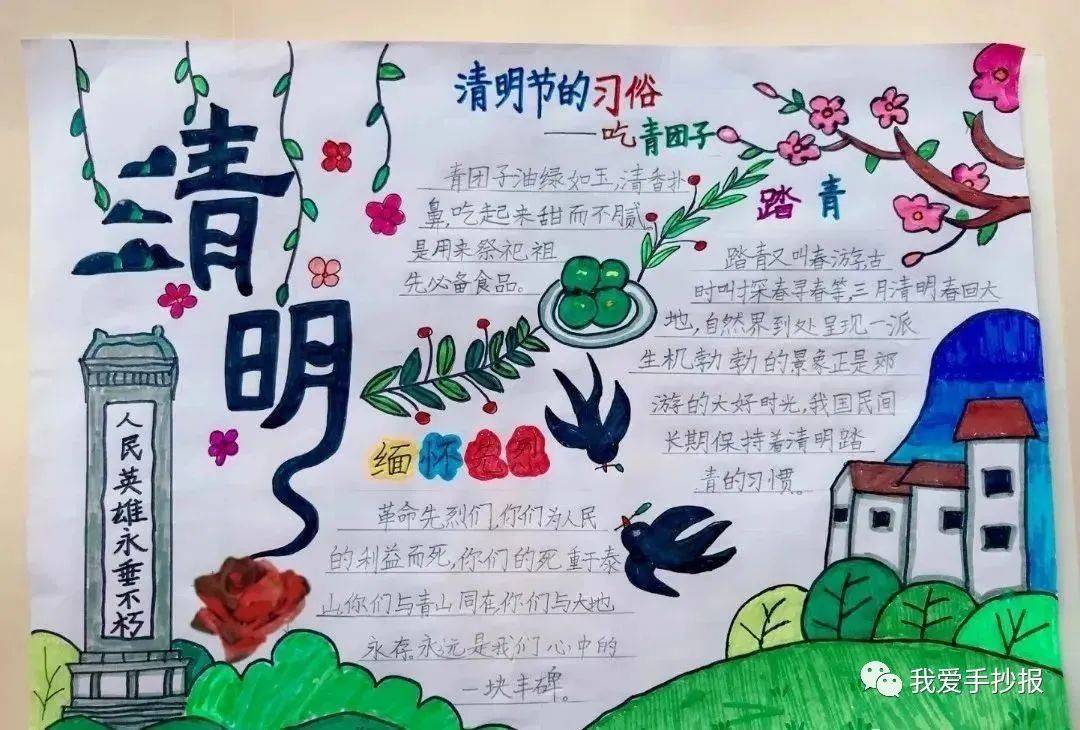 清明
清明节的习俗
——吃青团子
青团子油绿如玉,清香扑
鼻,吃起来甜而不腻,
是用来祭祀祖
先必备食品。
踏青
踏青又叫春游,古
时叫探春寻春等,三月清明春回大
地,自然界到处呈现一派
生机勃勃的景象正是郊
游的大好时光,我国民间
长期保持着清明踏
青的习惯。
缅怀先烈
革命先烈们,你们为人民
的利益而死,你们的死重于泰
山,你们与青山同在,你们与大地
永存。永远是我们心中的
一块丰碑。
人民英雄永垂不朽
我爱手抄报